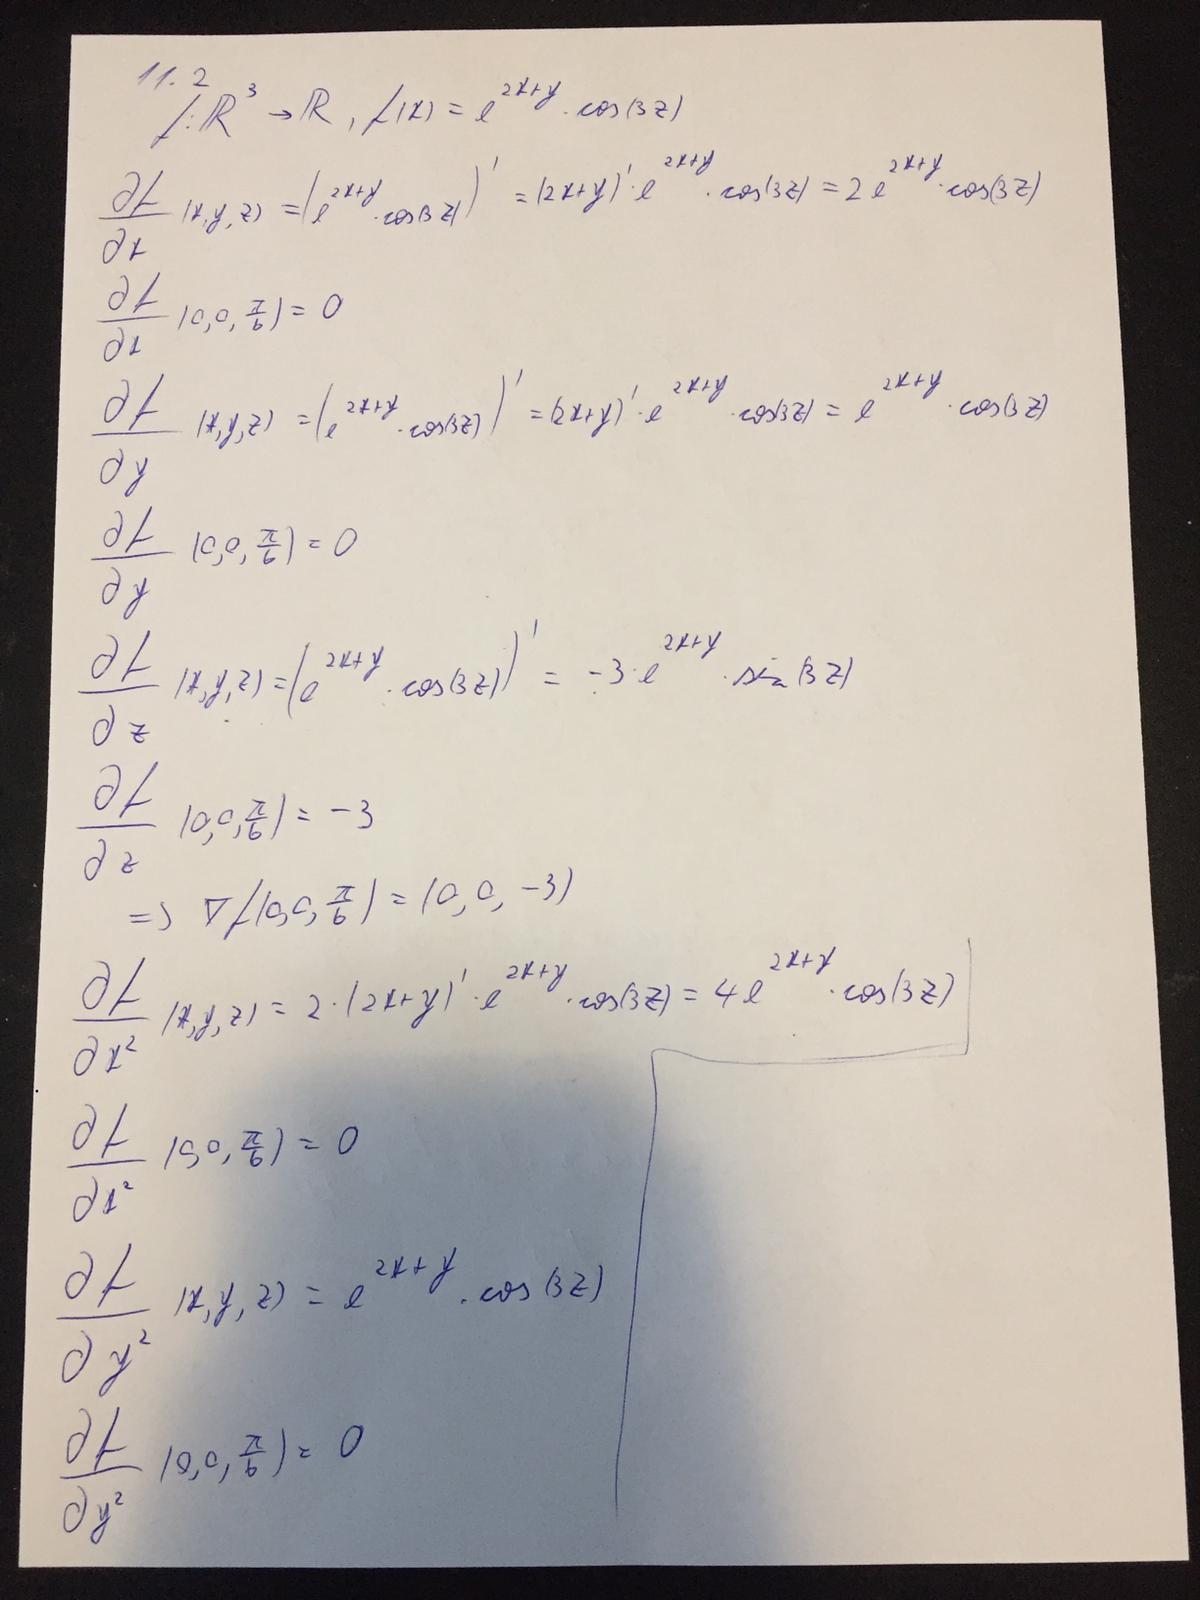 11.2
f: ℝ³ → ℝ, f(x) = e^{2x+y} · cos(3z)
∂f/∂x (x,y,z) = (e^{2x+y} · cos(3z))' = (2x+y)' · e^{2x+y} · cos(3z) = 2e^{2x+y} · cos(3z)
∂f/∂x (0,0,π/6) = 0
∂f/∂y (x,y,z) = (e^{2x+y} · cos(3z))' = (2x+y)' · e^{2x+y} · cos(3z) = e^{2x+y} · cos(3z)
∂f/∂y (0,0,π/6) = 0
∂f/∂z (x,y,z) = (e^{2x+y} · cos(3z))' = -3 · e^{2x+y} · sin(3z)
∂f/∂z (0,0,π/6) = -3
=> ∇f(0,0,π/6) = (0,0,-3)
∂f/∂x² (x,y,z) = 2 · (2x+y)' · e^{2x+y} · cos(3z) = 4e^{2x+y} · cos(3z)
∂f/∂x² (0,0,π/6) = 0
∂f/∂y² (x,y,z) = e^{2x+y} · cos(3z)
∂f/∂y² (0,0,π/6) = 0